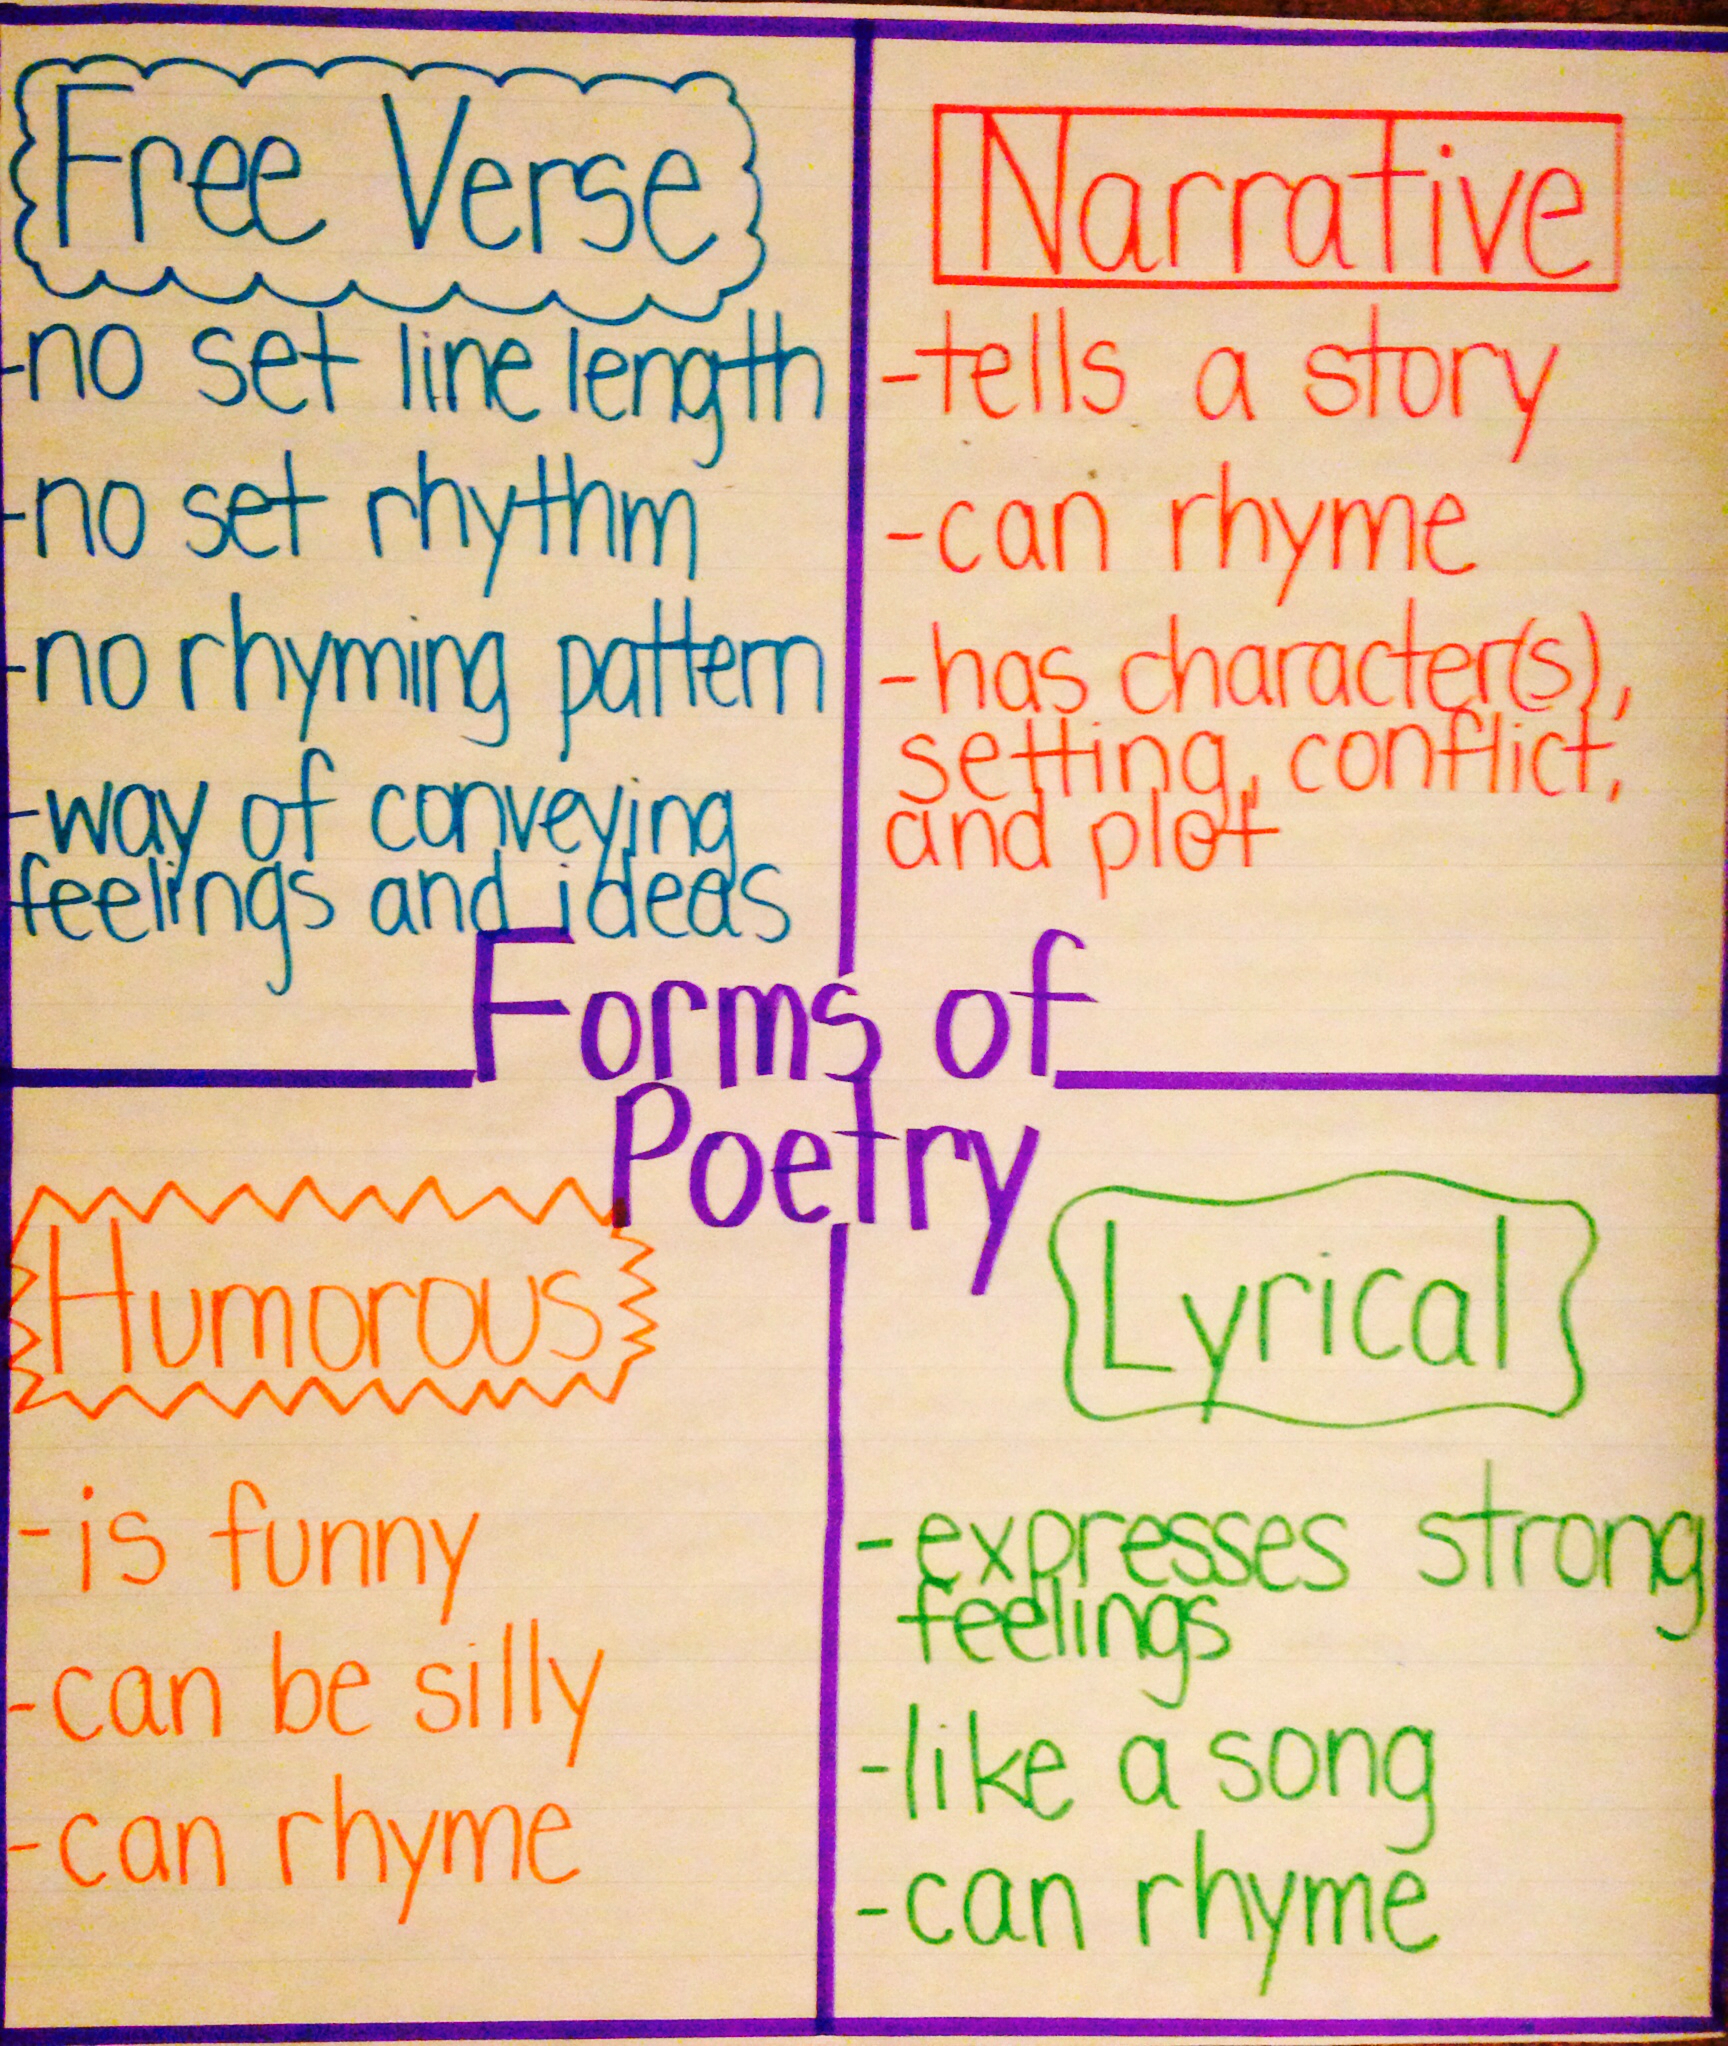 Free Verse
-no set line length
-no set rhythm
-no rhyming pattern
-way of conveying
feelings and ideas
Narrative
-tells a story
-can rhyme
-has character(s),
setting, conflict,
and plot
Forms of
Poetry
Humorous
-is funny
-can be silly
-can rhyme
Lyrical
-expresses strong
feelings
-like a song
-can rhyme